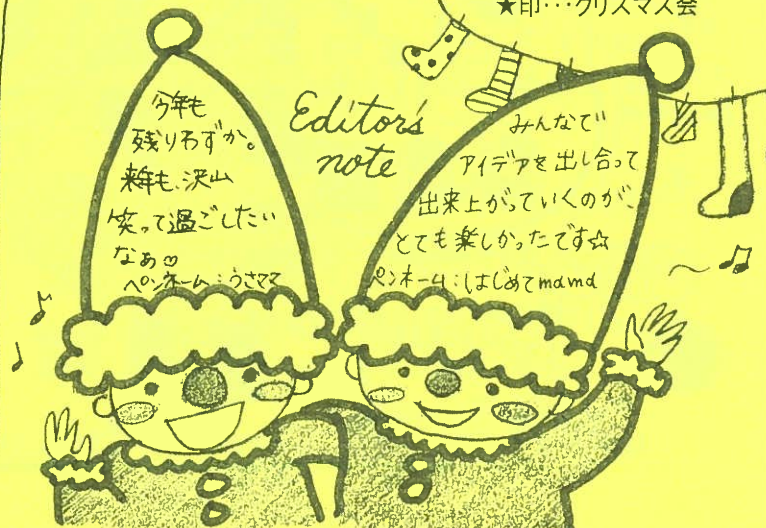 ★印・・・クリスマス会
Editor's
note
今年も
残りわずか。
来年も、沢山
笑って過ごしたい
なぁ♡
ペンネーム:うさママ
みんなで
アイデアを出し合って
出来上がっていくのが、
とても楽しかったです☆
ペンネーム:はじめてmama